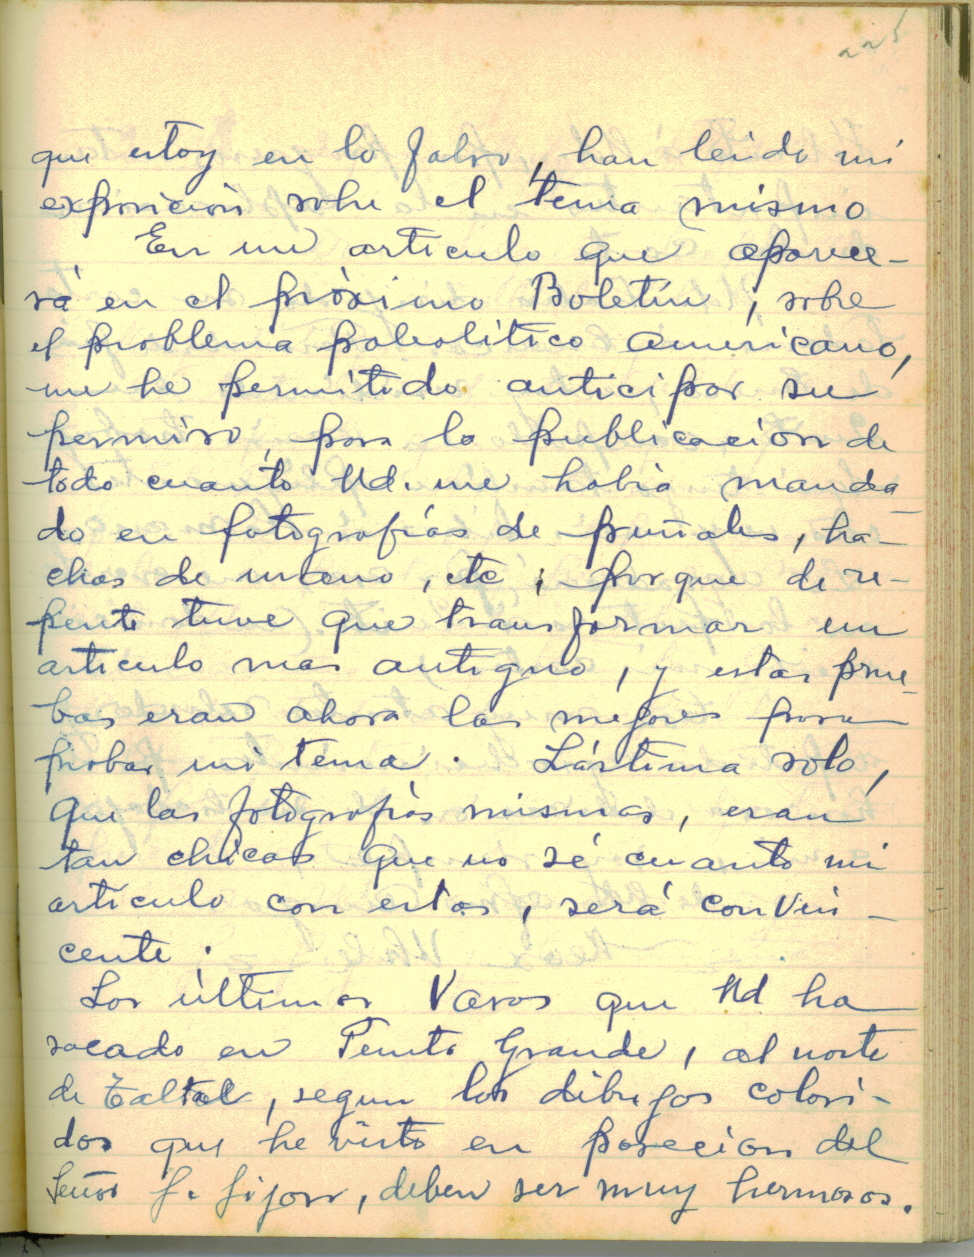 225
que estoy en lo falso, han leido mi
exposición sobre el tema mismo
En un articulo que aparece-
rá en el próximo Boletín, sobre
el problema paleolitico americano,
me he permitido anticipar su
permiso, para la publicación de
todo cuanto Ud. me había manda-
do en fotografías de puñales, ha-
chas de mano, etc; porque de re-
pente tuve que transformar un
articulo mas antiguo, y estas prue-
bas eran ahora las mejores para
probar mi tema. Lástima solo,
que las fotografías mismas, eran
tan chicas que no sé cuanto mi
articulo con estas, será convin-
cente.
Los últimos Vasos que Ud ha
sacado en Punta Grande, al norte
de Taltal, segun los dibujos colori-
dos que he visto en posecion del
Señor J. Jijon, deben ser muy hermosos.